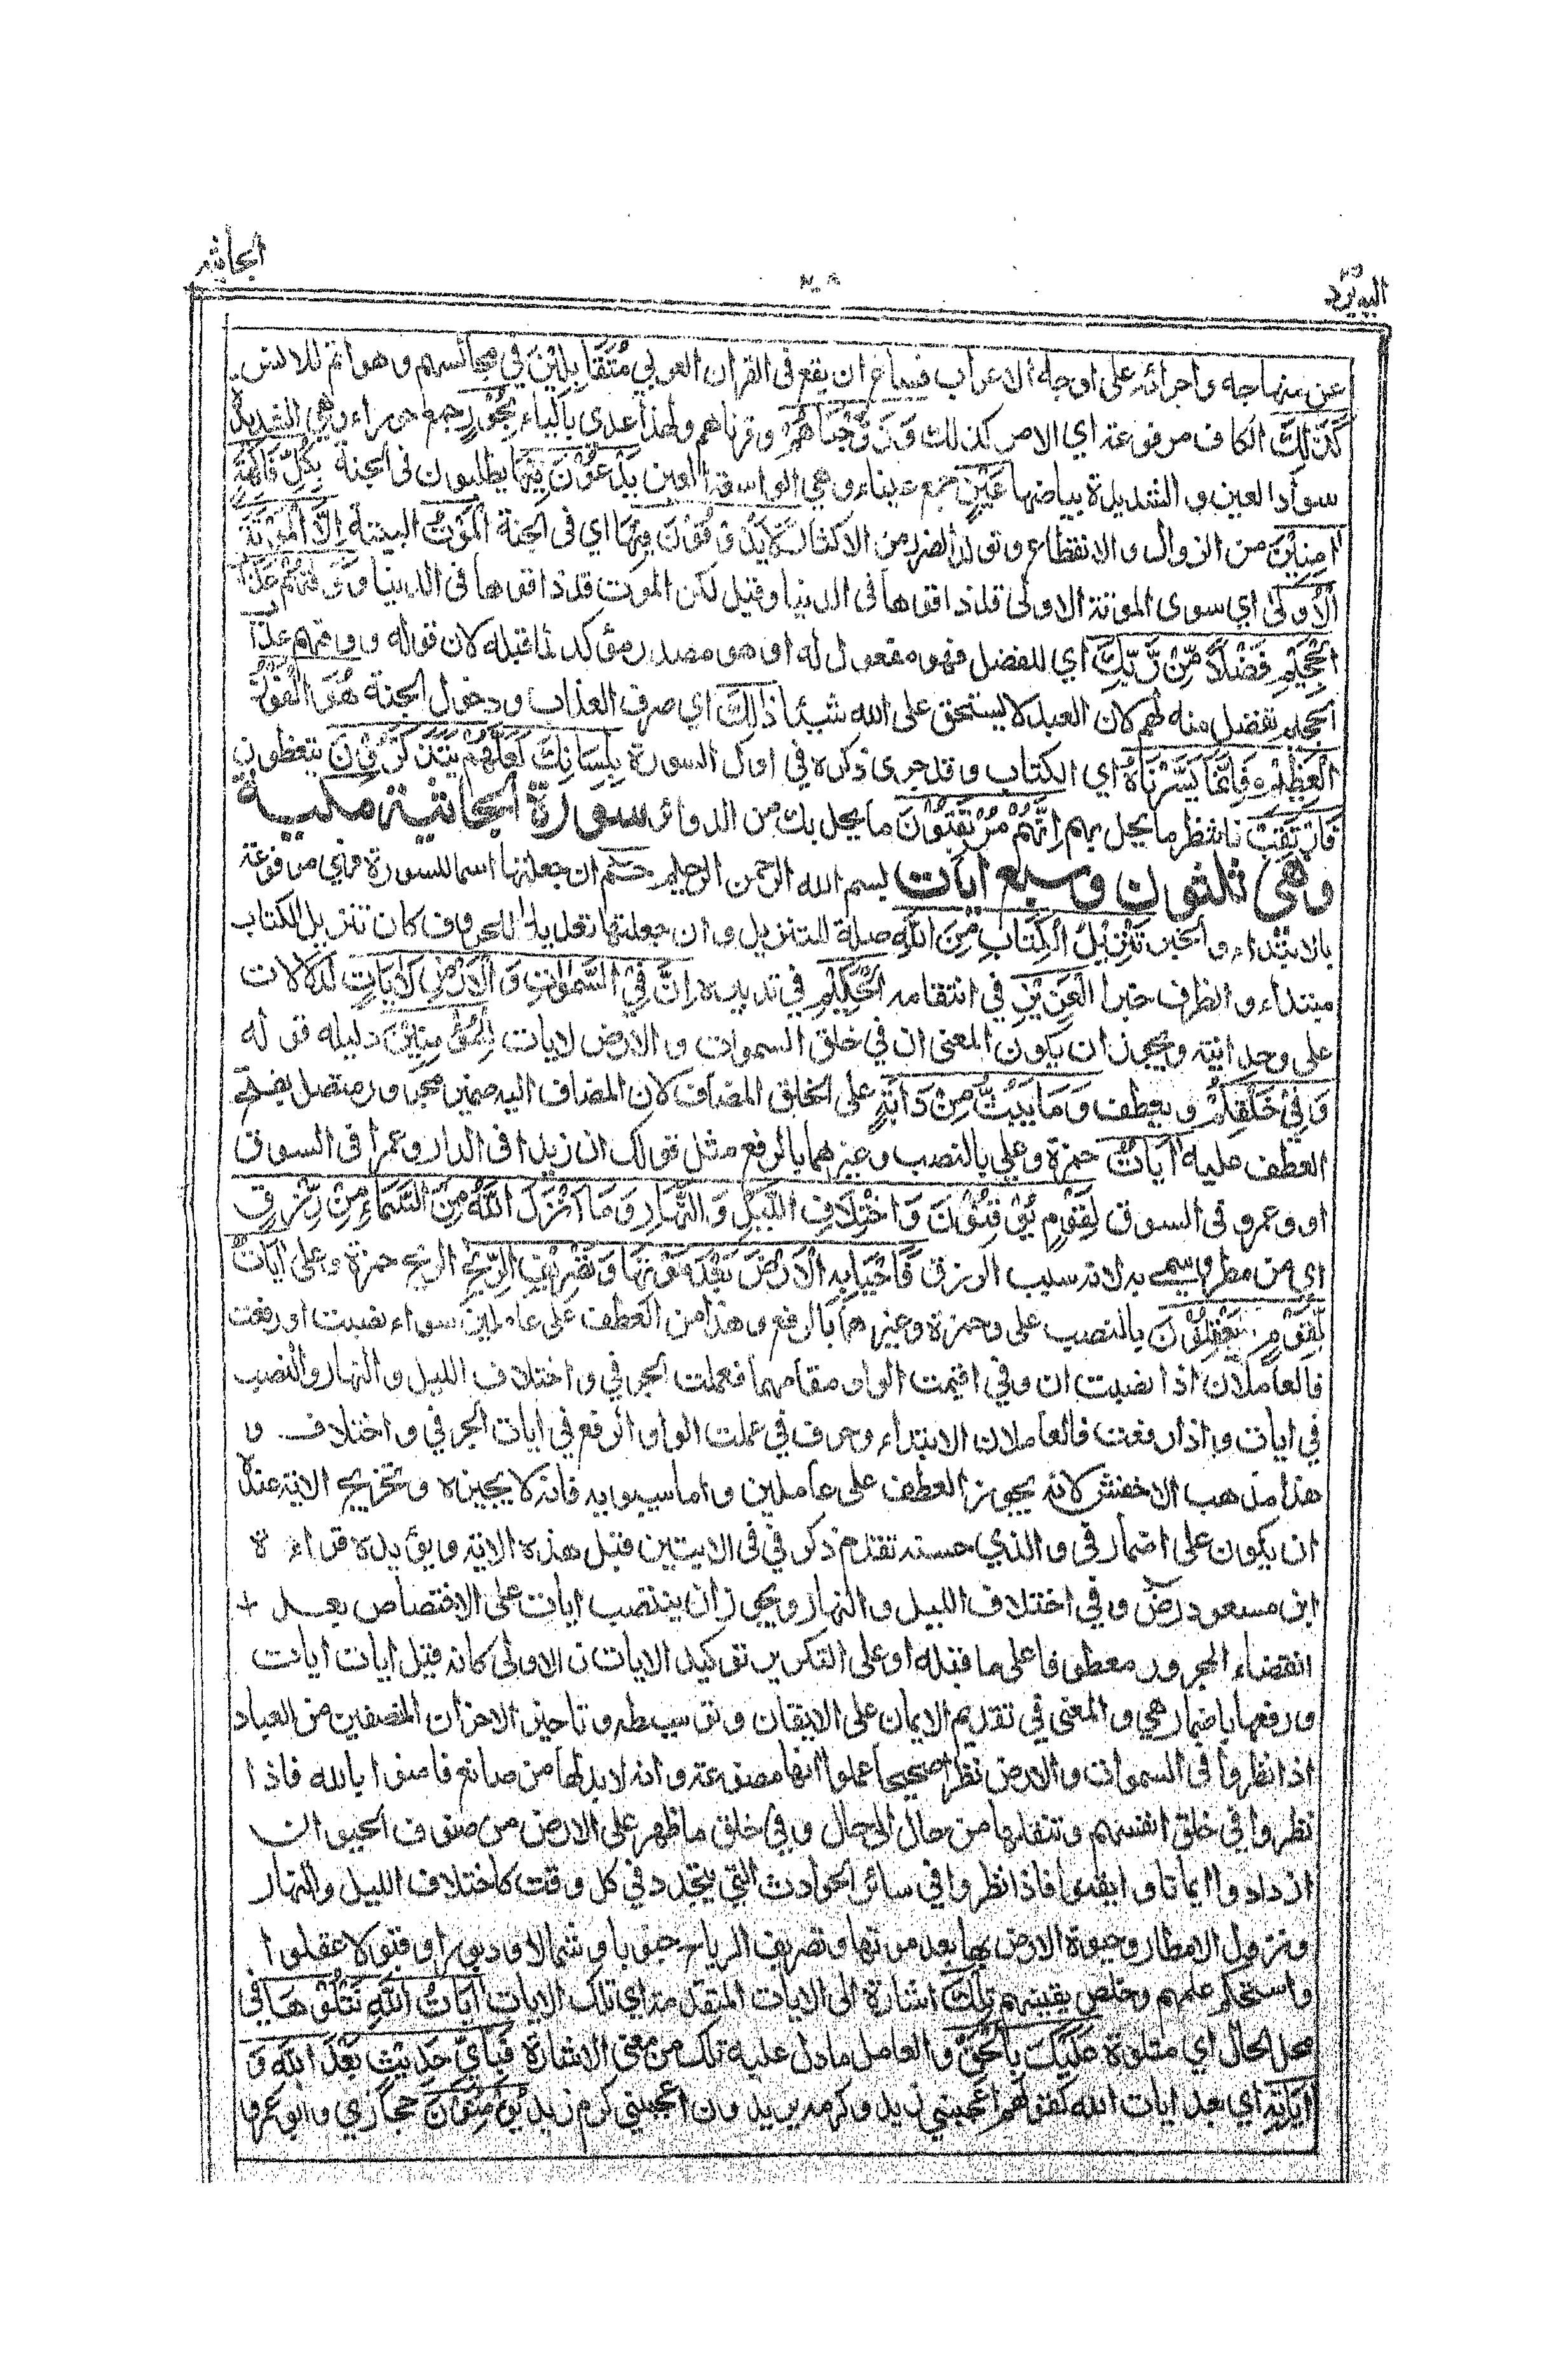 الجاثيه
اليه يرد
عن منهاجه واجرائه على اوجه الاعراب فساغ ان يقع فى القران العربي مُتَقَابِلِيْنَ في مجالسهم وهو اتم للانس
كَذٰلِكَ الكاف مرفوعة اي الامر كذلك وَزَوَّجْنَاهُمْ وقرناهم ولهذا عدي بالباء بِحُوْرٍ جمع حوراء وهي الشديدة
سواد العين والشديدة بياضها عِيْنٍ جمع عيناء وهي الواسعة العين يَدْعُوْنَ فِيْهَا يطلبون فى الجنة بِكُلِّ فَاكِهَةٍ
اٰمِنِيْنَ من الزوال والانقطاع وتولد الضرر من الاكثار لَا يَذُوْقُوْنَ فِيْهَا اي فى الجنة الْمَوْتَ البتة اِلَّا الْمَوْتَةَ
الْاُوْلٰى اي سوى الموتة الاولى قد ذاقوها فى الدنيا وقيل لكن الموت قد ذاقوها فى الدنيا وَوَقٰهُمْ عَذَابَ
الْجَحِيْمِ فَضْلًا مِّنْ رَّبِّكَ اي للفضل فهو مفعول له او هو مصدر مؤكد لما قبله لان قوله ووقهم عذاب
الجحيم تفضل منه لهم لان العبد لا يستحق على الله شيئا ذٰلِكَ اي صرف العذاب ودخول الجنة هُوَ الْفَوْزُ
الْعَظِيْمُ فَاِنَّمَا يَسَّرْنَاهُ اي الكتاب وقد جرى ذكره في اول السورة بِلِسَانِكَ لَعَلَّهُمْ يَتَذَكَّرُوْنَ يتعظون
فَارْتَقِبْ فانتظر ما يحل بهم اِنَّهُمْ مُرْتَقِبُوْنَ ما يحل بك من الدوائر سورة الجاثية مكية
وهى ثلثون وسبع ايات بسم الله الرحمن الرحيم حٰمٓ ان جعلتها اسما للسورة فهي مرفوعة
بالابتداء والخبر تَنْزِيْلُ الْكِتَابِ مِنَ اللهِ صلة للتنزيل وان جعلتها تعديدا للحروف كان تنزيل الكتاب
مبتداء والظرف خبرا الْعَزِيْزِ في انتقامه الْحَكِيْمِ في تدبيره اِنَّ فِي السَّمٰوٰتِ وَالْاَرْضِ لَاٰيَاتٍ لدلالات
على وحدانيته ويجوز ان يكون المعنى ان في خلق السموات والارض لايات لِلْمُؤْمِنِيْنَ دليله قوله
وَفِيْ خَلْقِكُمْ ويعطف وَمَا يَبُثُّ مِنْ دَابَّةٍ على الخلق المضاف لان المضاف اليه ضمير مجرور متصل يقبح
العطف عليه اٰيَاتٌ حمزة وعلي بالنصب وغيرهما بالرفع مثل قولك ان زيدا فى الدار وعمرا فى السوق
او وعمرو فى السوق لِقَوْمٍ يُوْقِنُوْنَ وَاخْتِلَافِ اللَّيْلِ وَالنَّهَارِ وَمَا اَنْزَلَ اللهُ مِنَ السَّمَاءِ مِنْ رِّزْقٍ
اي من مطر وسمي به لانه سبب الرزق فَاَحْيَا بِهِ الْاَرْضَ بَعْدَ مَوْتِهَا وَتَصْرِيْفِ الرِّيٰحِ الريح حمزة وعلى اٰيَاتٌ
لِّقَوْمٍ يَّعْقِلُوْنَ بالنصب على وحمزة وغيرهما بالرفع وهذا من العطف على عاملين سواء نصبت او رفعت
فالعاملان اذا نصبت ان وفي اقيمت الواو مقامهما فعملت الجر في واختلاف الليل والنهار والنصب
في ايات واذا رفعت فالعاملان الابتداء وحرف في عملت الواو الرفع في ايات الجر في واختلاف و
هذا مذهب الاخفش لانه يجوز العطف على عاملين واما سيبويه فانه لا يجيزه وتخريج الاية عنده
ان يكون على اضمار فى والذي حسنه تقدم ذكر في فى الايتين قبل هذه الاية ويؤيده قراءة
ابن مسعود رض وفي اختلاف الليل والنهار ويجوز ان ينتصب ايات على الاختصاص بعد
انقضاء المجرور معطوفا على ما قبله او على التكرير توكيد الايات الاولى كانه قيل ايات ايات
ورفعها باضمار هي والمعنى في تقديم الايمان على الايقان وتوسيطه وتاخير الاخر ان المنصفين من العباد
اذا نظروا فى السموات والارض نظرا صحيحا علموا انها مصنوعة وانه لا بد لها من صانع فامنوا بالله فاذا
نظروا في خلق انفسهم وتنقلها من حال الى حال وفي خلق ما ظهر على الارض من صنوف الحيوان
ازدادوا ايمانا وايقنوا فاذا نظروا في سائر الحوادث التي يتجدد في كل وقت كاختلاف الليل والنهار
ونزول الامطار وحيوة الارض بها بعد موتها وتصريف الرياح جنوبا وشمالا ودبورا وقبولا عقلوا
واستحكم علمهم وخلص يقينهم تِلْكَ اشارة الى الايات المتقدمة اي تلك الايات اٰيَاتُ اللهِ نَتْلُوْهَا في
محل الحال اي متلوة عَلَيْكَ بِالْحَقِّ والعامل ما دل عليه تلك من معنى الاشارة فَبِاَيِّ حَدِيْثٍ بَعْدَ اللهِ وَ
اٰيَاتِهٖ اي بعد ايات الله كقولهم اعجبني زيد وكرمه يريدون اعجبني كرم زيد يُؤْمِنُوْنَ حجازي وابو عمرو